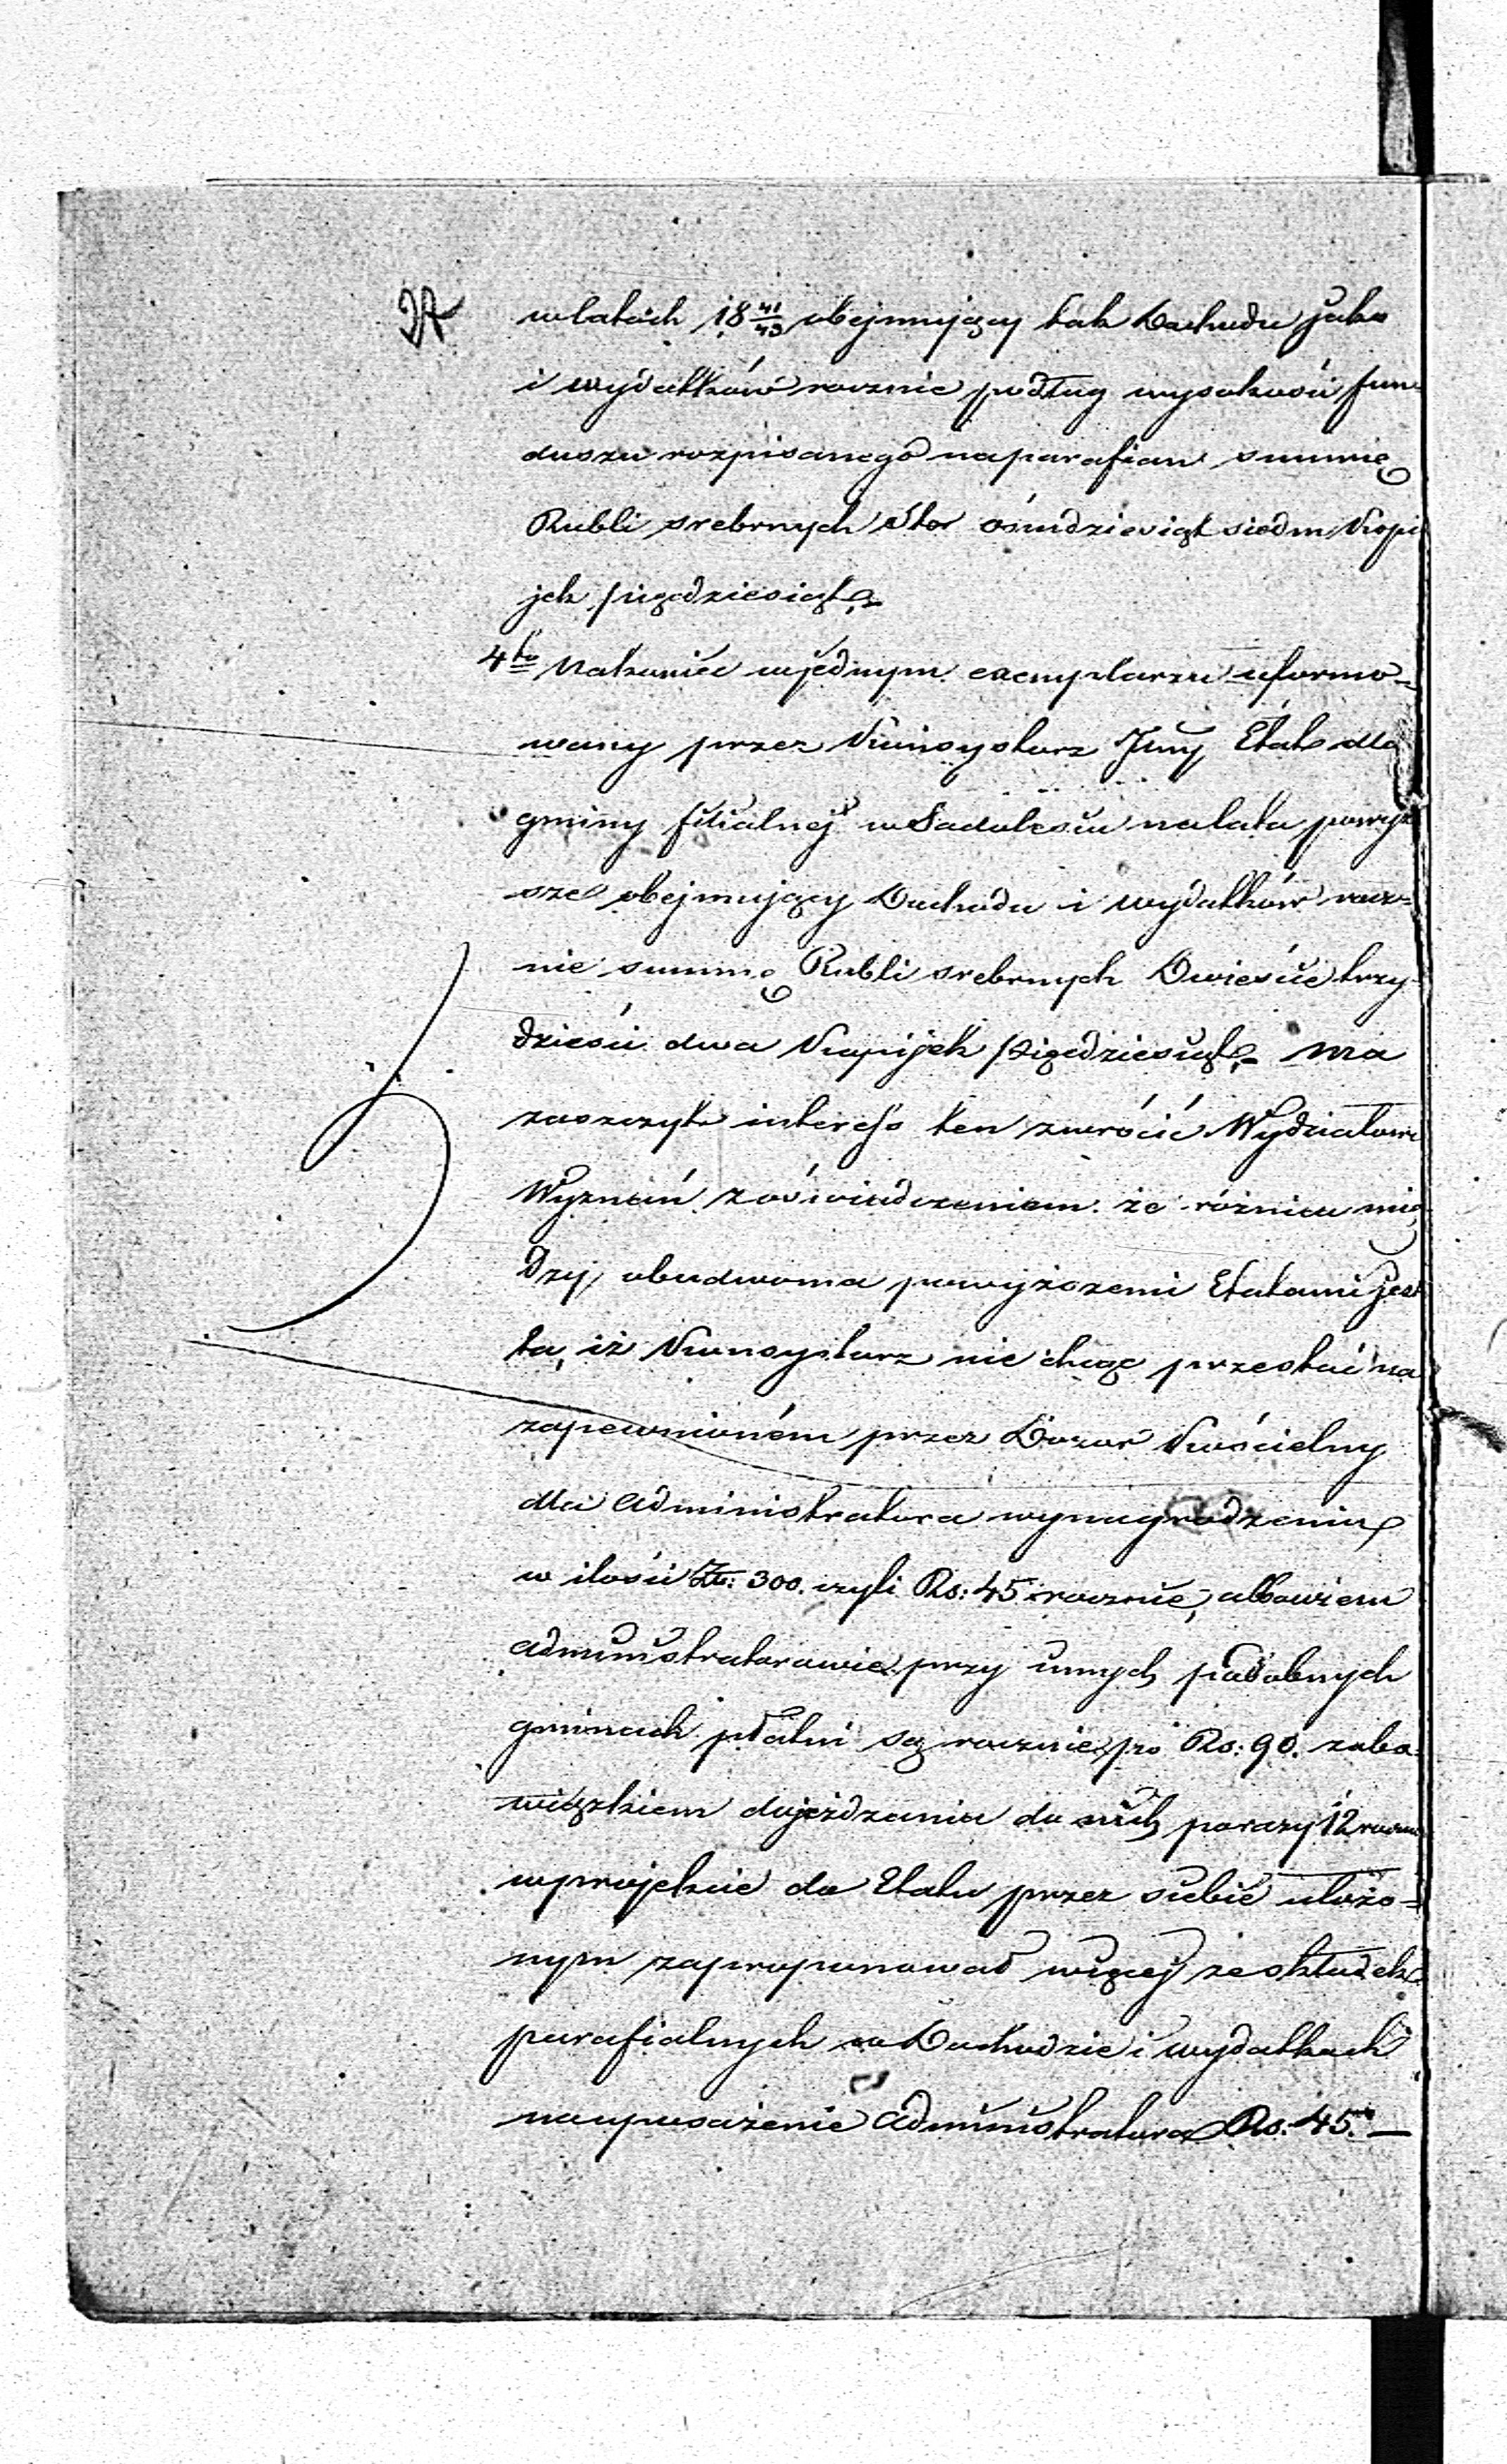 w latach 18 41/43 obejmujący tak Dochodu jako
i wydatków rocznie podług wysokości fun-
duszu rozpisanego na parafian summę
Rubli srebrnych Sto ośmdziesiąt siedm Kopi
jek pięćdziesiąt.
4to Nakoniec w jednym exemplarzu uformo-
wany przez Konsystorz Jnny Etat dla
gminy filialnej w Sadoleściu na lata powyż
sze obejmujący Dochodu i wydatków rocz-
nie summę Rubli srebrnych Dwieście trzy-
dzieści dwa Kopijek pięćdziesiąt, ma
zaszczyt interess ten zwrócić Wydziałowi
Wyznań z oświadczeniem że różnica mię
dzy obudwoma powyższemi Etatami jest
ta, iż Konsystorz nie chcąc przestać na
zapewnioném przez Dozór Kościelny
dla Administratora wynagrodzeniu
w ilości Zł: 300. czyli Rs: 45 rocznie, albowiem
Administratorowie przy innych podobnych
gminach płatni są rocznie po Rs: 90. z obo-
wiązkiem dojeżdzania do nich po razy 12 roczn
w projekcie do Etatu przez siebie ułożo-
nym zaproponował więcej ze składek
parafialnych w Dochodzie i wydatkach
na uposażenie Administratora Rs. 45. —